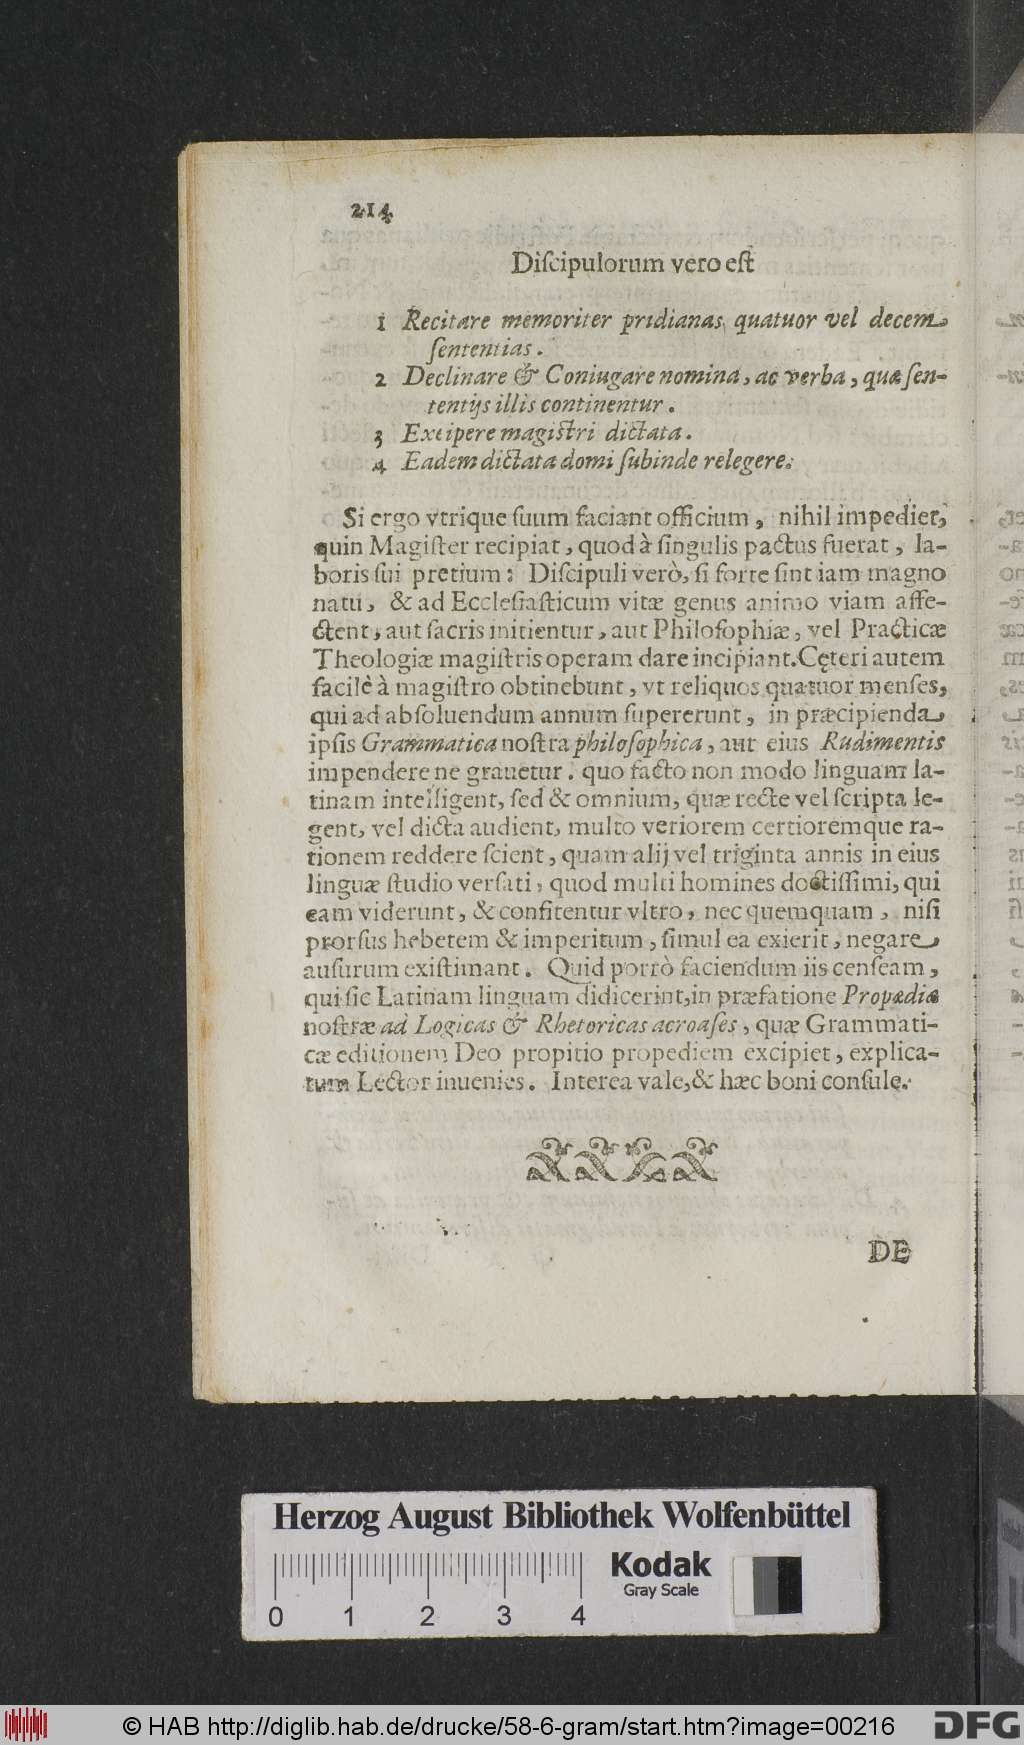 214
Diſcipulorum vero eſt
1 Recitare memoriter pridianas quatuor vel decem
ſententias.
2 Declinare & Coniugare nomina, ac verba, quæ ſen-
tentijs illis continentur.
3 Excipere magiſtri dictata.
4 Eadem dictata domi ſubinde relegere.
Si ergo vtrique ſuum faciant officium, nihil impediet,
quin Magiſter recipiat, quod à ſingulis pactus fuerat, la-
boris ſui pretium: Diſcipuli verò, ſi forte ſint iam magno
natu, & ad Eccleſiaſticum vitæ genus animo viam affe-
ctent, aut ſacris initientur, aut Philoſophiæ, vel Practicæ
Theologiæ magiſtris operam dare incipiant. Cęteri autem
facilè à magiſtro obtinebunt, vt reliquos quatuor menſes,
qui ad abſoluendum annum ſupererunt, in præcipienda
ipſis Grammatica noſtra philoſophica, aut eius Rudimentis
impendere ne grauetur. quo facto non modo linguam la-
tinam intelligent, ſed & omnium, quæ recte vel ſcripta le-
gent, vel dicta audient, multo veriorem certioremque ra-
tionem reddere ſcient, quam alij vel triginta annis in eius
linguæ ſtudio verſati, quod multi homines doctiſſimi, qui
eam viderunt, & confitentur vltro, nec quemquam, niſi
prorſus hebetem & imperitum, ſimul ea exierit, negare
auſurum exiſtimant. Quid porrò faciendum iis cenſeam,
qui ſic Latinam linguam didicerint, in præfatione Propædiæ
noſtræ ad Logicas & Rhetoricas acroaſes, quæ Grammati-
cæ editionem Deo propitio propediem excipiet, explica-
tum Lector inuenies. Interea vale, & hæc boni conſule.
DE
Herzog August Bibliothek Wolfenbüttel
Kodak
Gray Scale
0 1 2 3 4
© HAB http://diglib.hab.de/drucke/58-6-gram/start.htm?image=00216
DFG